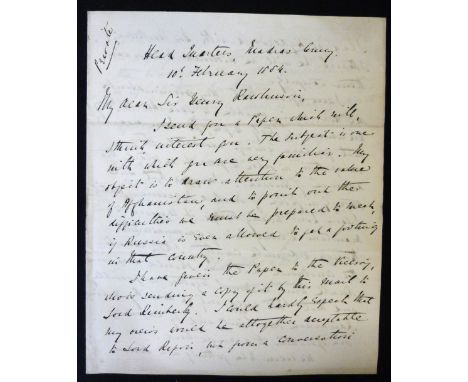 Private
Head Quarters, Madras Army
10th February 1884.
My dear Sir Henry Rawlinson,
I send you a Paper which will,
I think, interest you. The subject is one
with which you are very familiar. My
object is to draw attention to the value
of Afghanistan, and to point out the
difficulties we must be prepared to meet,
if Russia is ever allowed to get a footing
in that country.
I have given the Paper to the Viceroy,
who is sending a copy of it by this mail to
Lord Kimberley. I could hardly expect that
my views would be altogether acceptable
to Lord Ripon, but from a conversation